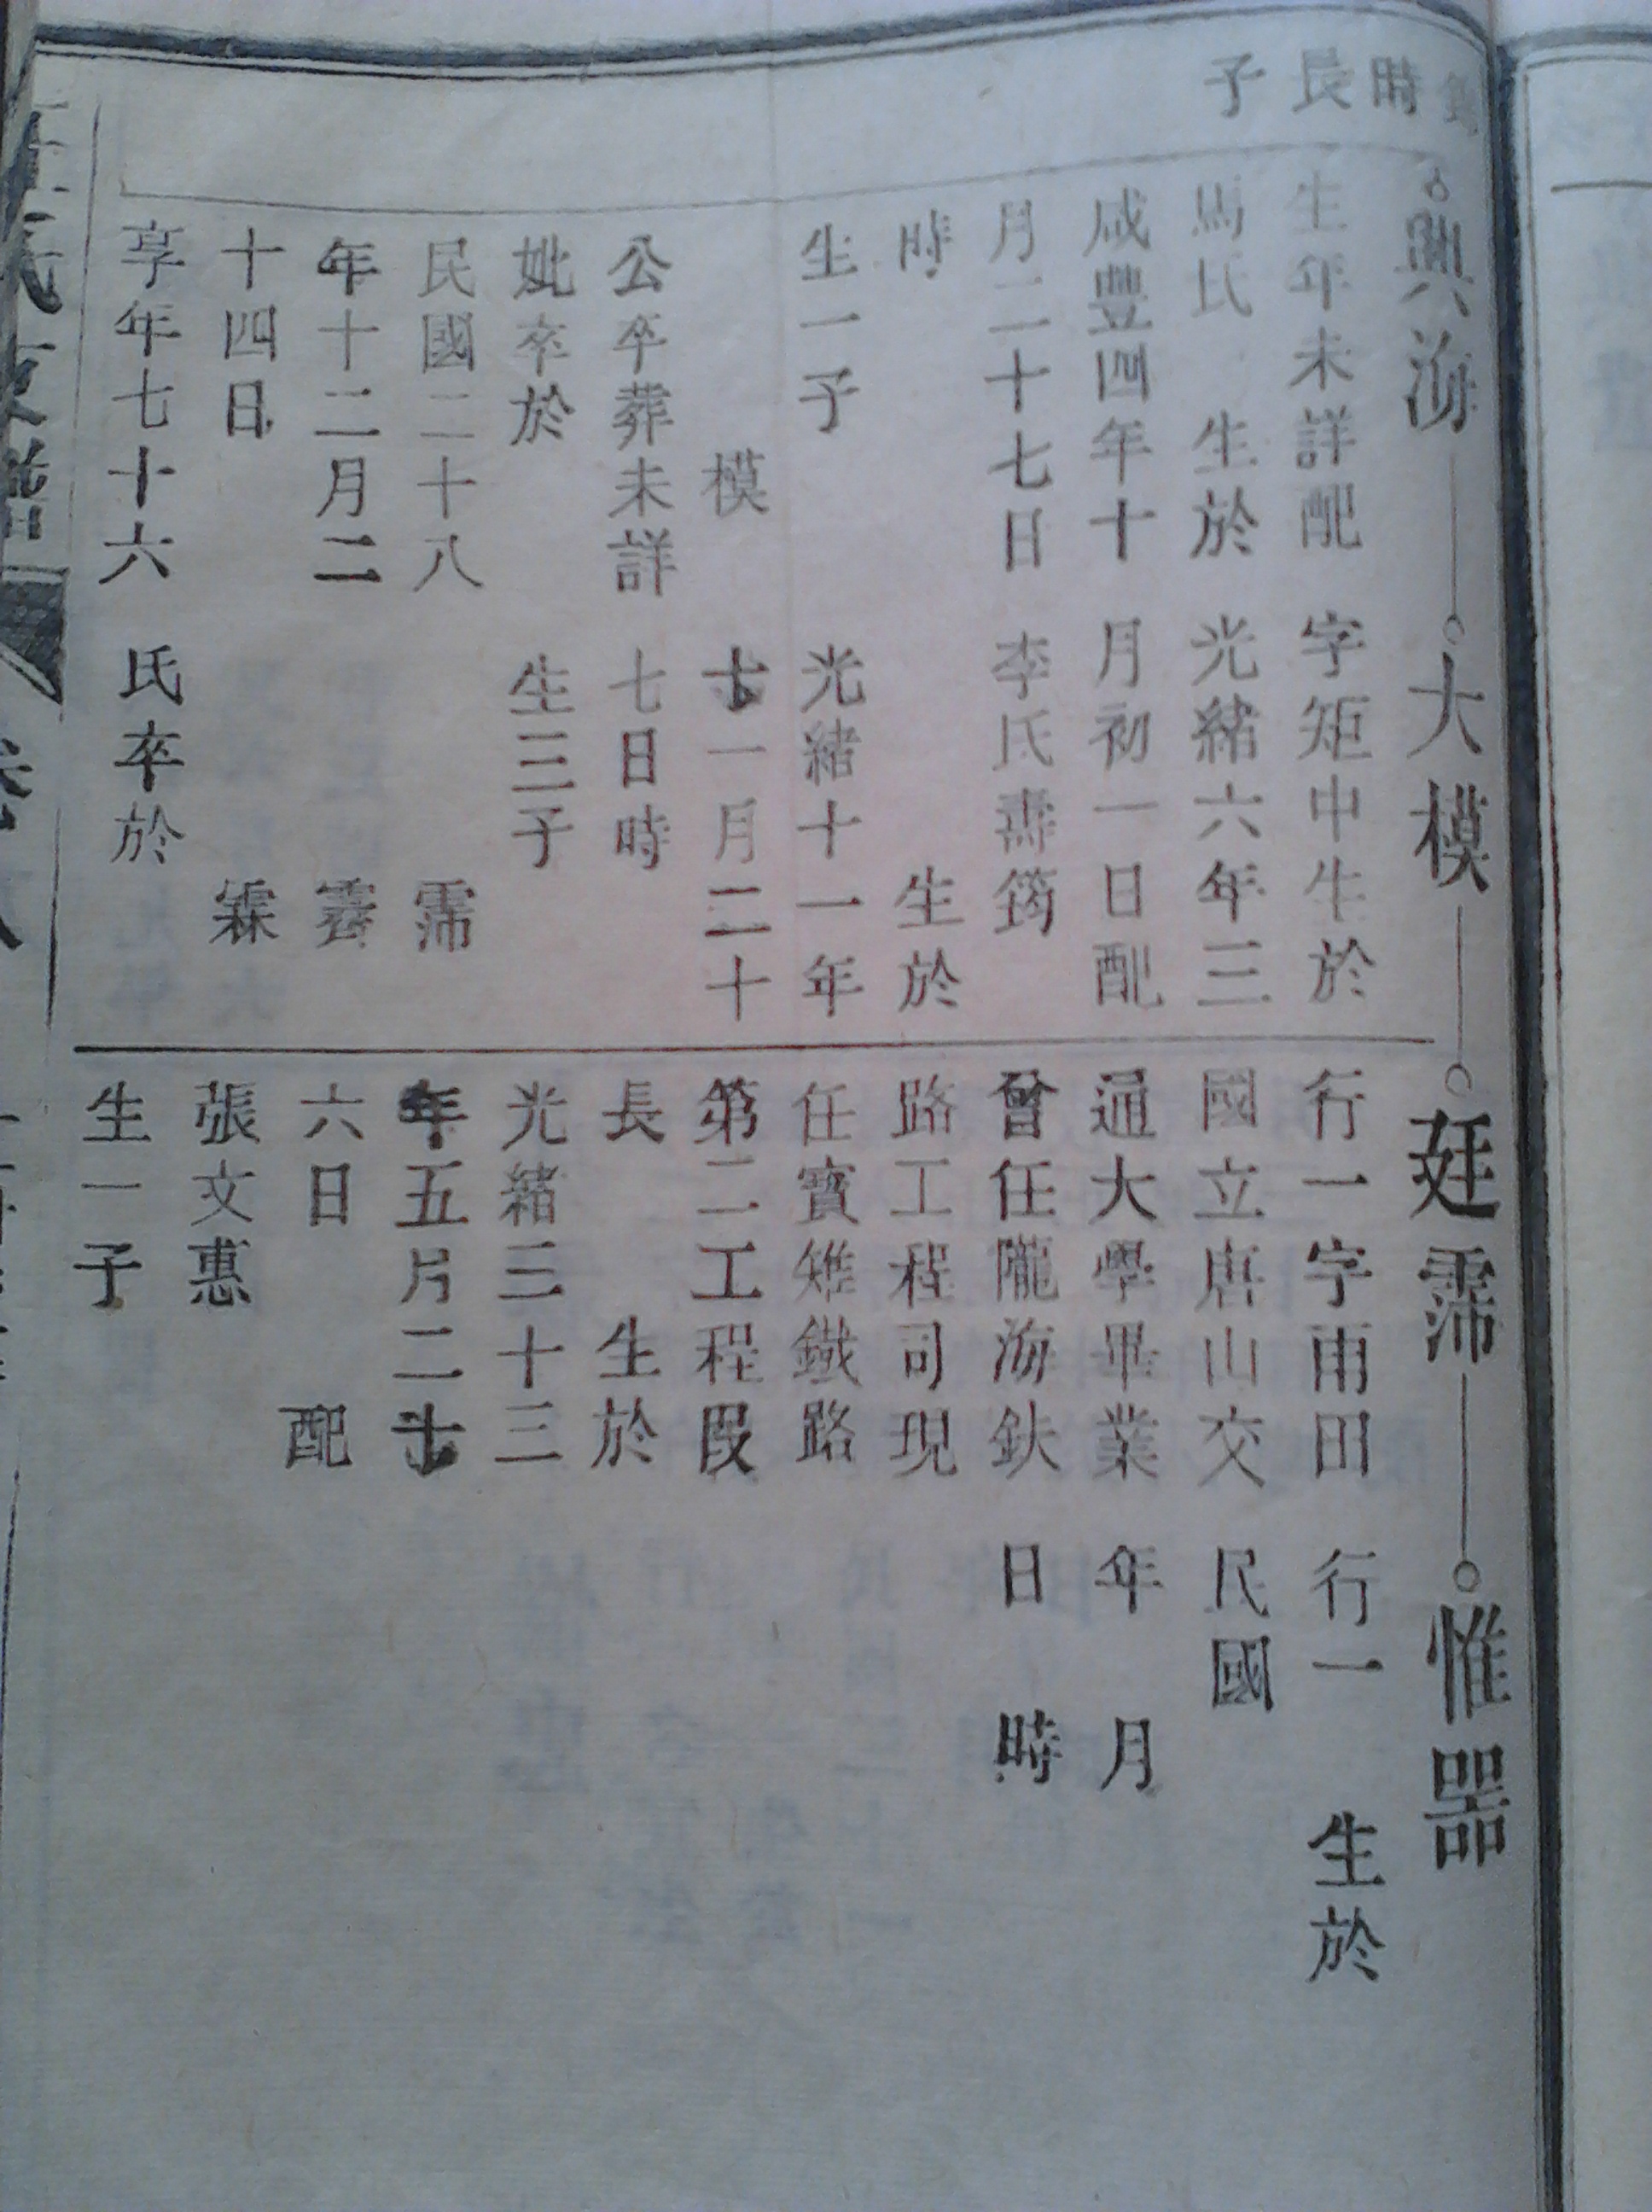 時
長
子
興海
大模
廷霈
惟器
生年未詳配
馬氏 生於
咸豐四年十
月二十七日
時
生一子
模
公卒葬未詳
妣卒於
民國二十八
年十二月二
十四日
享年七十六
字矩中生於
光緒六年三
月初一日配
李氏壽筠
生於
光緒十一年
十一月二十
七日時
生三子
霈
霱
霖
氏卒於
行一字雨田
國立唐山交
通大學畢業
曾任隴海鉄
路工程司現
任寶雉鐵路
第二工程段
長 生於
光緒三十三
年五月二十
六日 配
張文惠
生一子
行一 生於
民國
年 月
日 時